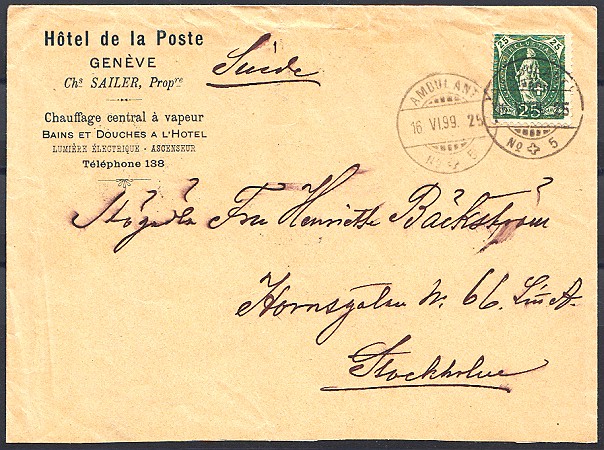 Hôtel de la Poste
GENÈVE
Chs SAILER, Propre
Chauffage central à vapeur
BAINS ET DOUCHES A L'HOTEL
LUMIÈRE ÉLECTRIQUE - ASCENSEUR
Téléphone 138
Suède
25 25
25
AMBULANT
16 VI.99. 25
No 5
25
No 5
Fru Henriette Bäckström
Hornsgatan No. 66
Stockholm